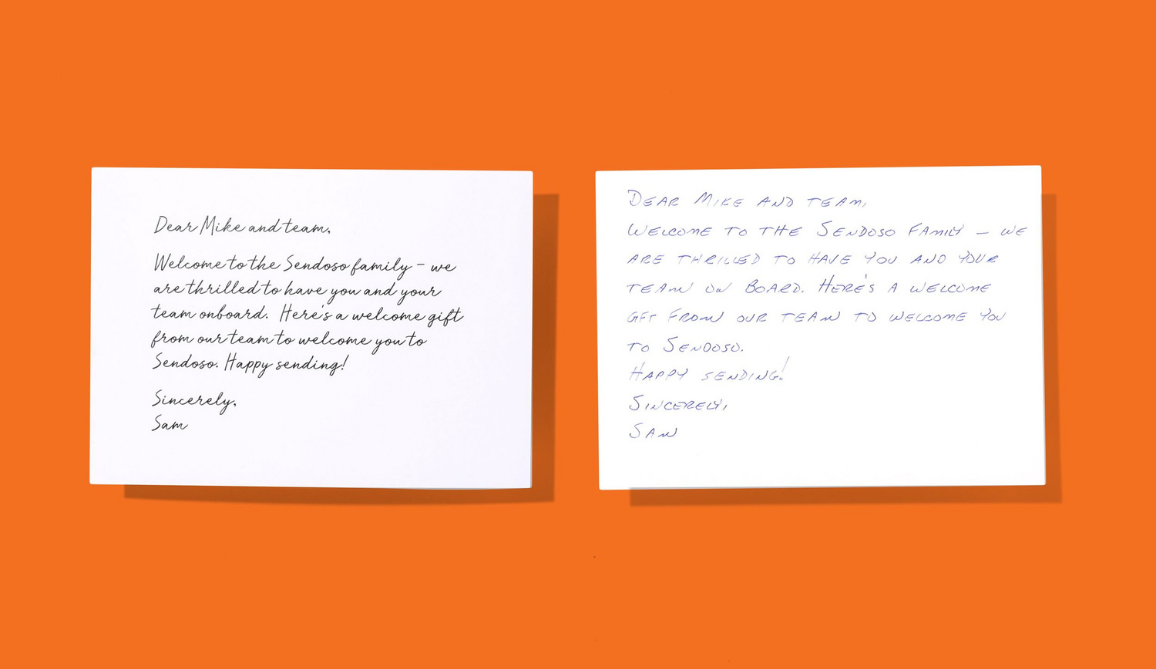 Dear Mike and team,
Welcome to the Sendoso family – we
are thrilled to have you and your
team onboard. Here's a welcome gift
from our team to welcome you to
Sendoso. Happy sending!
Sincerely,
Sam
DEAR MIKE AND TEAM,
WELCOME TO THE SENDOSO FAMILY – WE
ARE THRILLED TO HAVE YOU AND YOUR
TEAM ON BOARD. HERE'S A WELCOME
GFT FROM OUR TEAM TO WELCOME YOU
TO SENDOSO.
HAPPY SENDING!
SINCERELY,
SAM